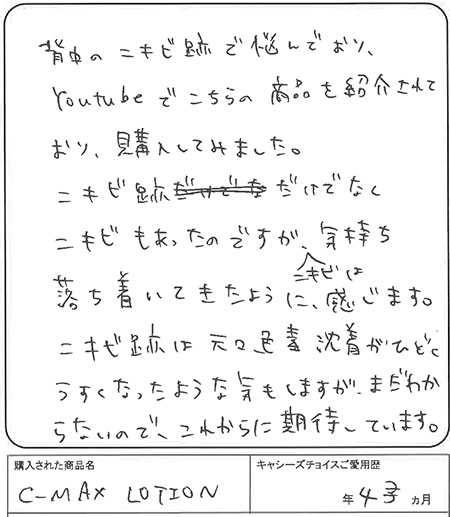 背中のニキビ跡で悩んでおり、
Youtubeでこちらの商品を紹介されて
おり、購入してみました。
ニキビ跡だけでな だけでなく
ニキビもあったのですが、気持ち
ニキビは
落ち着いてきたように、感じます。
ニキビ跡は元々色素沈着がひどく
うすくなったような気もしますが、まだわか
らないので、これからに期待しています。
購入された商品名
キャシーズチョイスご愛用歴
C-MAX LOTION
年 4 ヵ月